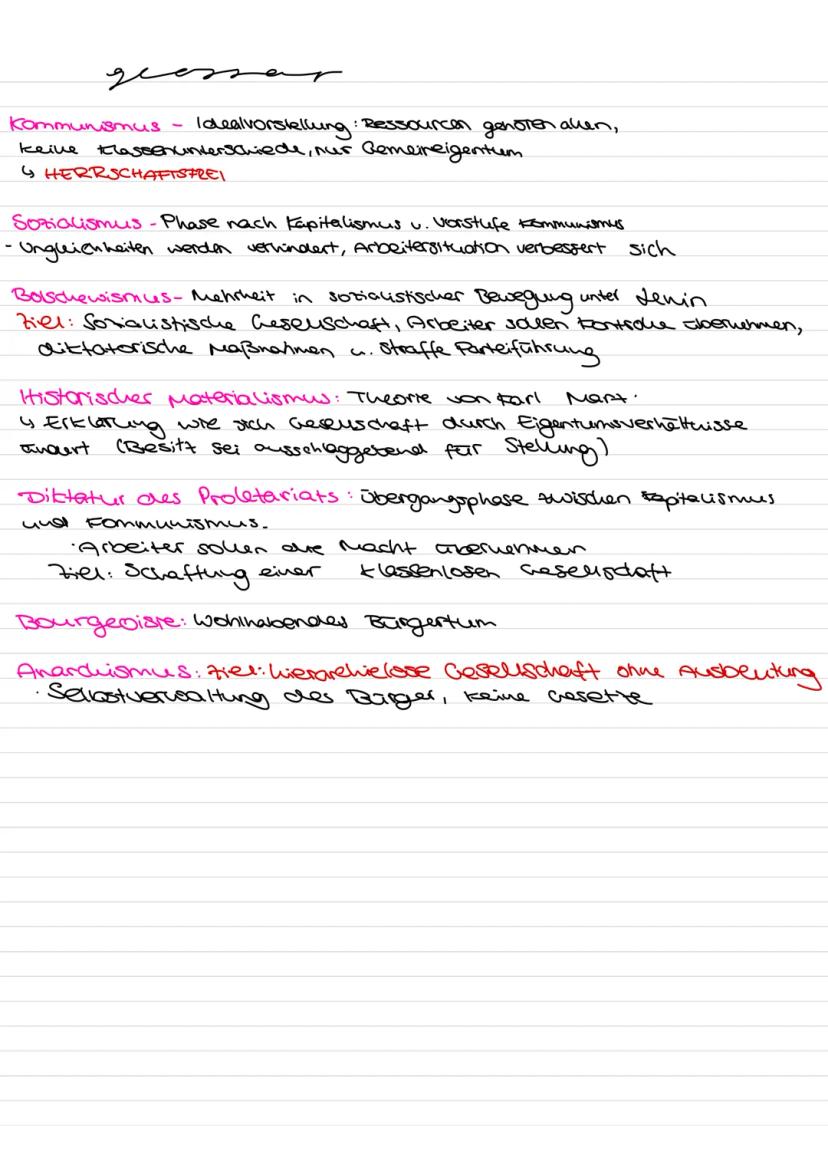 glossar
Kommunismus - Idealvorstellung: Ressourcen gehören allen,
keine Klassenunterschiede, nur Gemeineigentum
↳ HERRSCHAFTSFREI
Sozialismus - Phase nach Kapitalismus u. Vorstufe Kommunismus
- Ungleichheiten werden verhindert, Arbeitersituation verbessert sich
Bolschewismus - Mehrheit in sozialistischer Bewegung unter Lenin
Ziel: Sozialistische Gesellschaft, Arbeiter sollen Kontrolle übernehmen,
diktatorische Maßnahmen u. straffe Parteiführung
Historischer Materialismus: Theorie von Karl Marx.
↳ Erklärung wie sich Gesellschaft durch Eigentumsverhältnisse
ändert (Besitz sei ausschlaggebend für Stellung)
Diktatur des Proletariats: Übergangsphase zwischen Kapitalismus
und Kommunismus.
· Arbeiter sollen die Macht übernehmen
Ziel: Schaffung einer klassenlosen Gesellschaft
Bourgeoisie: Wohlhabendes Bürgertum
Anarchismus: Ziel: hierarchielose Gesellschaft ohne Ausbeutung
· Selbstverwaltung des Bürger, keine Gesetze